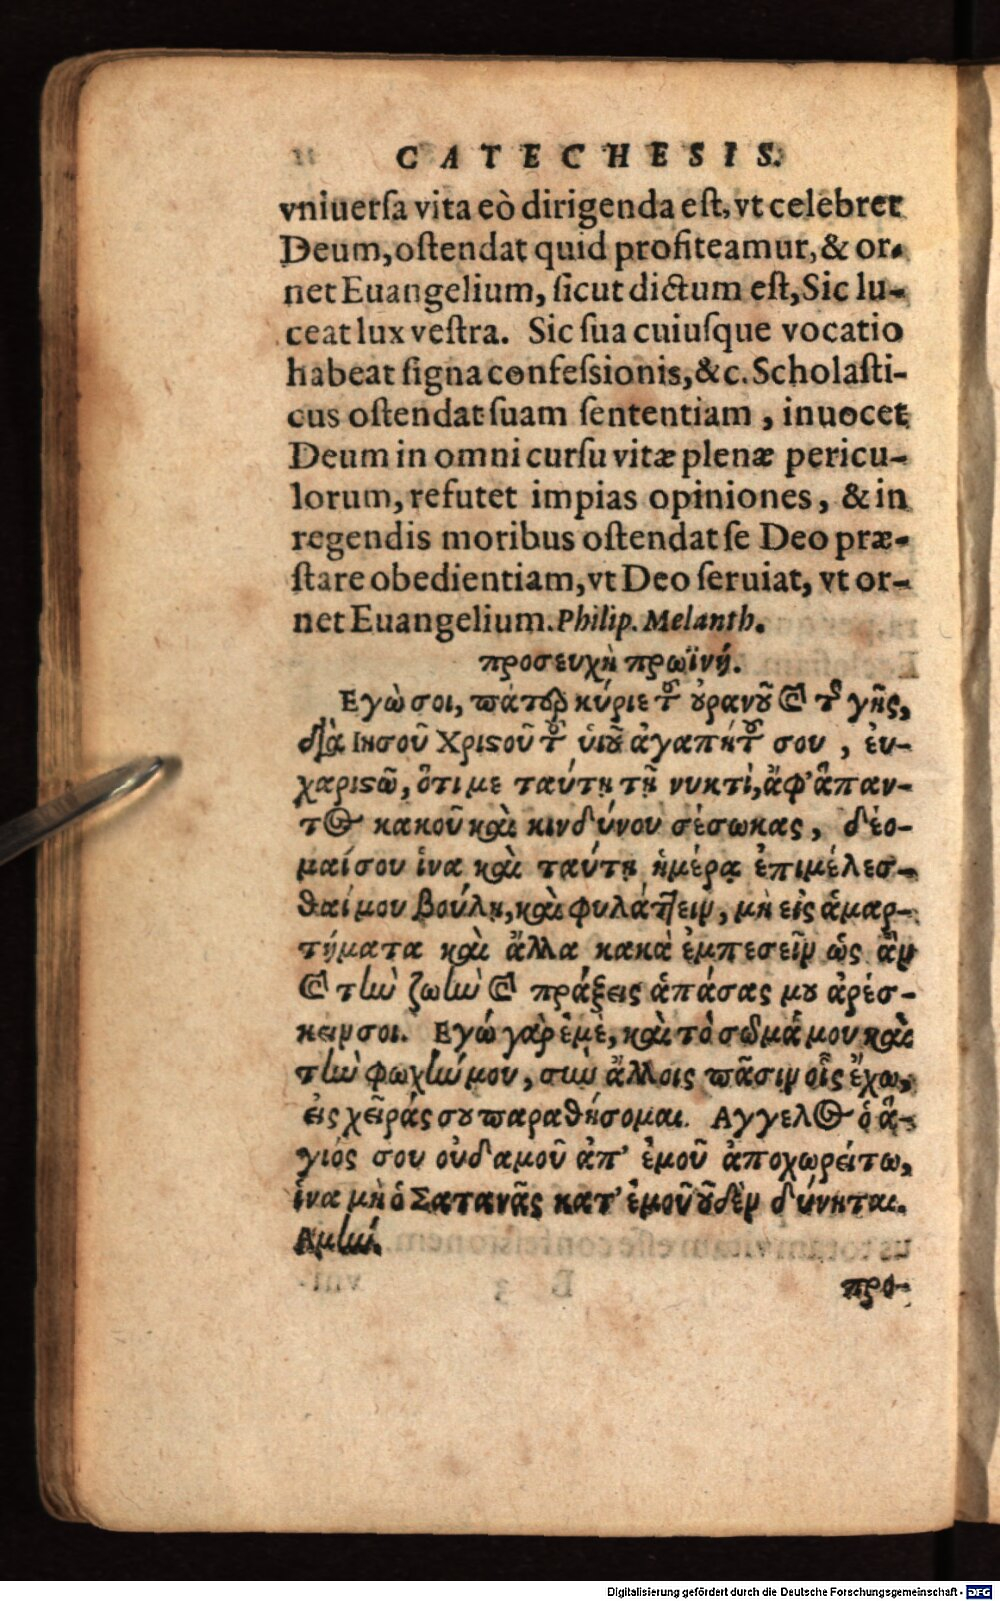 CATECHESIS.
vniuerſa vita eò dirigenda eſt, vt celebret
Deum, oſtendat quid profiteamur, & or-
net Euangelium, ſicut dictum eſt, Sic lu-
ceat lux veſtra. Sic ſua cuiuſque vocatio
habeat ſigna confeſsionis, &c. Scholaſti-
cus oſtendat ſuam ſententiam, inuocet
Deum in omni curſu vitæ plenæ pericu-
lorum, refutet impias opiniones, & in
regendis moribus oſtendat ſe Deo præ-
ſtare obedientiam, vt Deo ſeruiat, vt or-
net Euangelium. Philip. Melanth.
προσευχὴ πρωϊνή.
Εγὼ σοι, πάτερ κύριε τοῦ ȣ̓ρανȣ͂ καὶ τῆς γῆς,
διὰ Ιησοῦ Χριϛοῦ τοῦ ὑιȣ͂ ἀγαπήτοῦ σου, ἐυ-
χαριϛῶ, ὅτι με ταύτῃ τῇ νυκτὶ, ἀφ' ἅπαν-
τος κακοῦ καὶ κινδύνου σέσωκας, δέο-
μαί σου ἵνα καὶ ταύτῃ ἡμέρᾳ ἐπιμέλεσ-
θαί μου βούλῃ, καὶ φυλάττειν, μὴ εἰς ἁμαρ-
τήματα καὶ ἄλλα κακὰ ἐμπεσεῖν ὡς ἂν
καὶ τὼ ζωὼ καὶ πράξεις ἁπάσας μȣ ἀρέσ-
κειν σοι. Εγώ γὰρ ἐμὲ, καὶ τὸ σῶμά μου καὶ
τὴν φωχήν μου, σὺν ἄλλοις πᾶσιν οἷς ἔχω,
εἰς χεῖράς σȣ παραθήσομαι. Αγγελος ὁ ἅ-
γιός σου οὐδαμοῦ ἀπ' ἐμοῦ ἀποχωρείτω,
ἵνα μὴ ὁ Σατανᾶς κατ' ἐμοῦ ȣ̓δὲν δύνηται.
Αμήν.
προ-
Digitalisierung gefördert durch die Deutsche Forschungsgemeinschaft - DFG